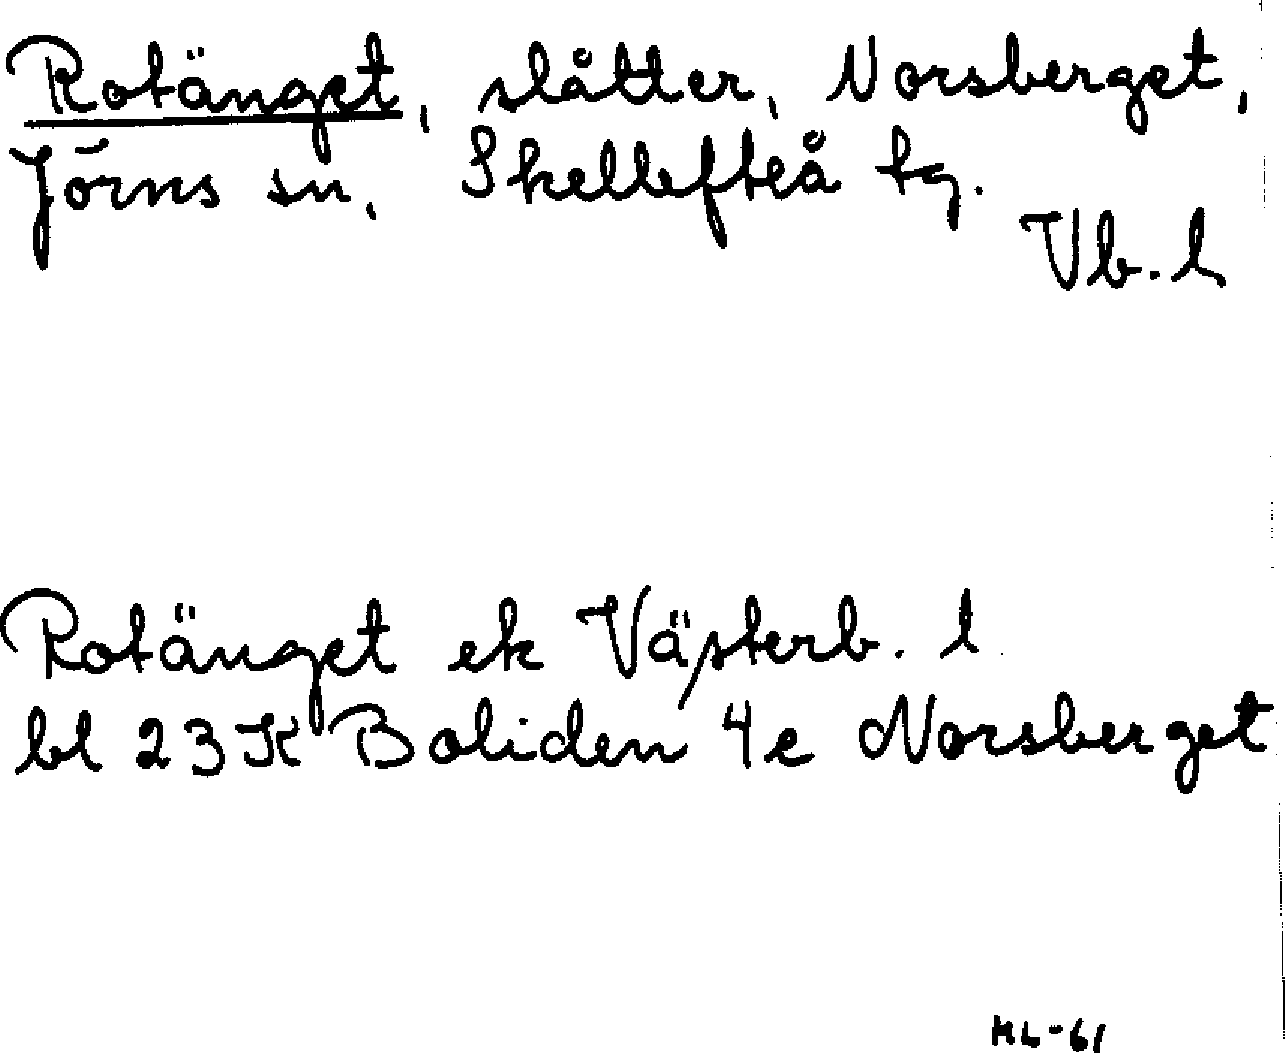 Rotänget, slåtter, Norsberget,
Jörns sn, Skellefteå tg.
Vb. l
Rotänget ek Västerb. l
bl 23 K Boliden 4e Norsberget
ML-61